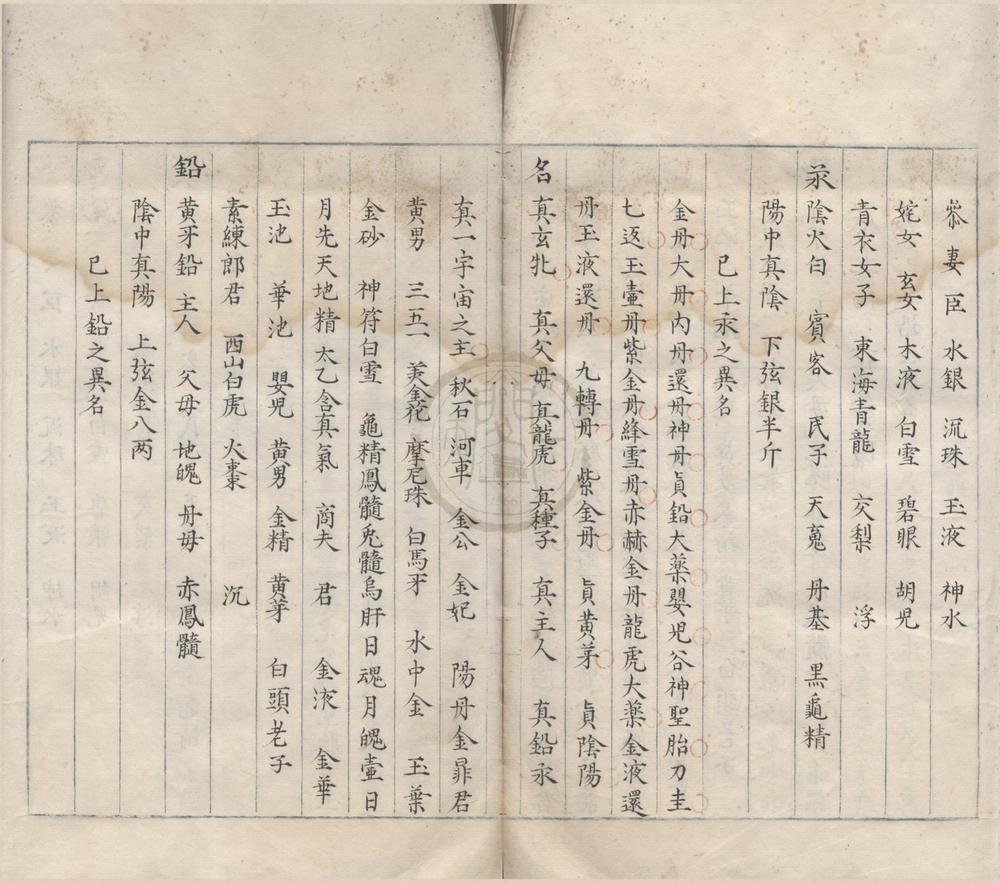 妻 臣 水銀 流珠 玉液 神水
姹女 玄女 木液 白雪 碧眼 胡児
青衣女子 東海青龍 交梨 浮
汞 陰火白 賓客 民子 天䰟 丹基 黒龜精
陽中真陰 下弦銀半斤
已上汞之異名
金丹大丹内丹還丹神丹貞鉛大薬嬰児谷神聖胎刀圭
七返玉壷丹紫金丹絳雪丹赤赫金丹龍虎大薬金液還
丹玉液還丹 九轉丹 紫金丹 貞黄芽 貞陰陽
名 真玄牝 真父母 真龍虎 真種子 真主人 真鉛汞
真一宇宙之主 秋石 河車 金公 金妃 陽丹金鼎君
黄男 三五一 美金花 摩尼珠 白馬牙 水中金 玉葉
金砂 神符白雪 龜精鳳髓兎髓烏肝日魂月魄壷日
月先天地精 太乙含真氣 商夫 君 金液 金華
玉池 華池 嬰児 黄男 金精 黄芽 白頭老子
素練郎君 西山白虎 火棗 沉
鉛 黄牙鉛 主人 父母 地魄 丹母 赤鳳髓
陰中真陽 上弦金八两
已上鉛之異名